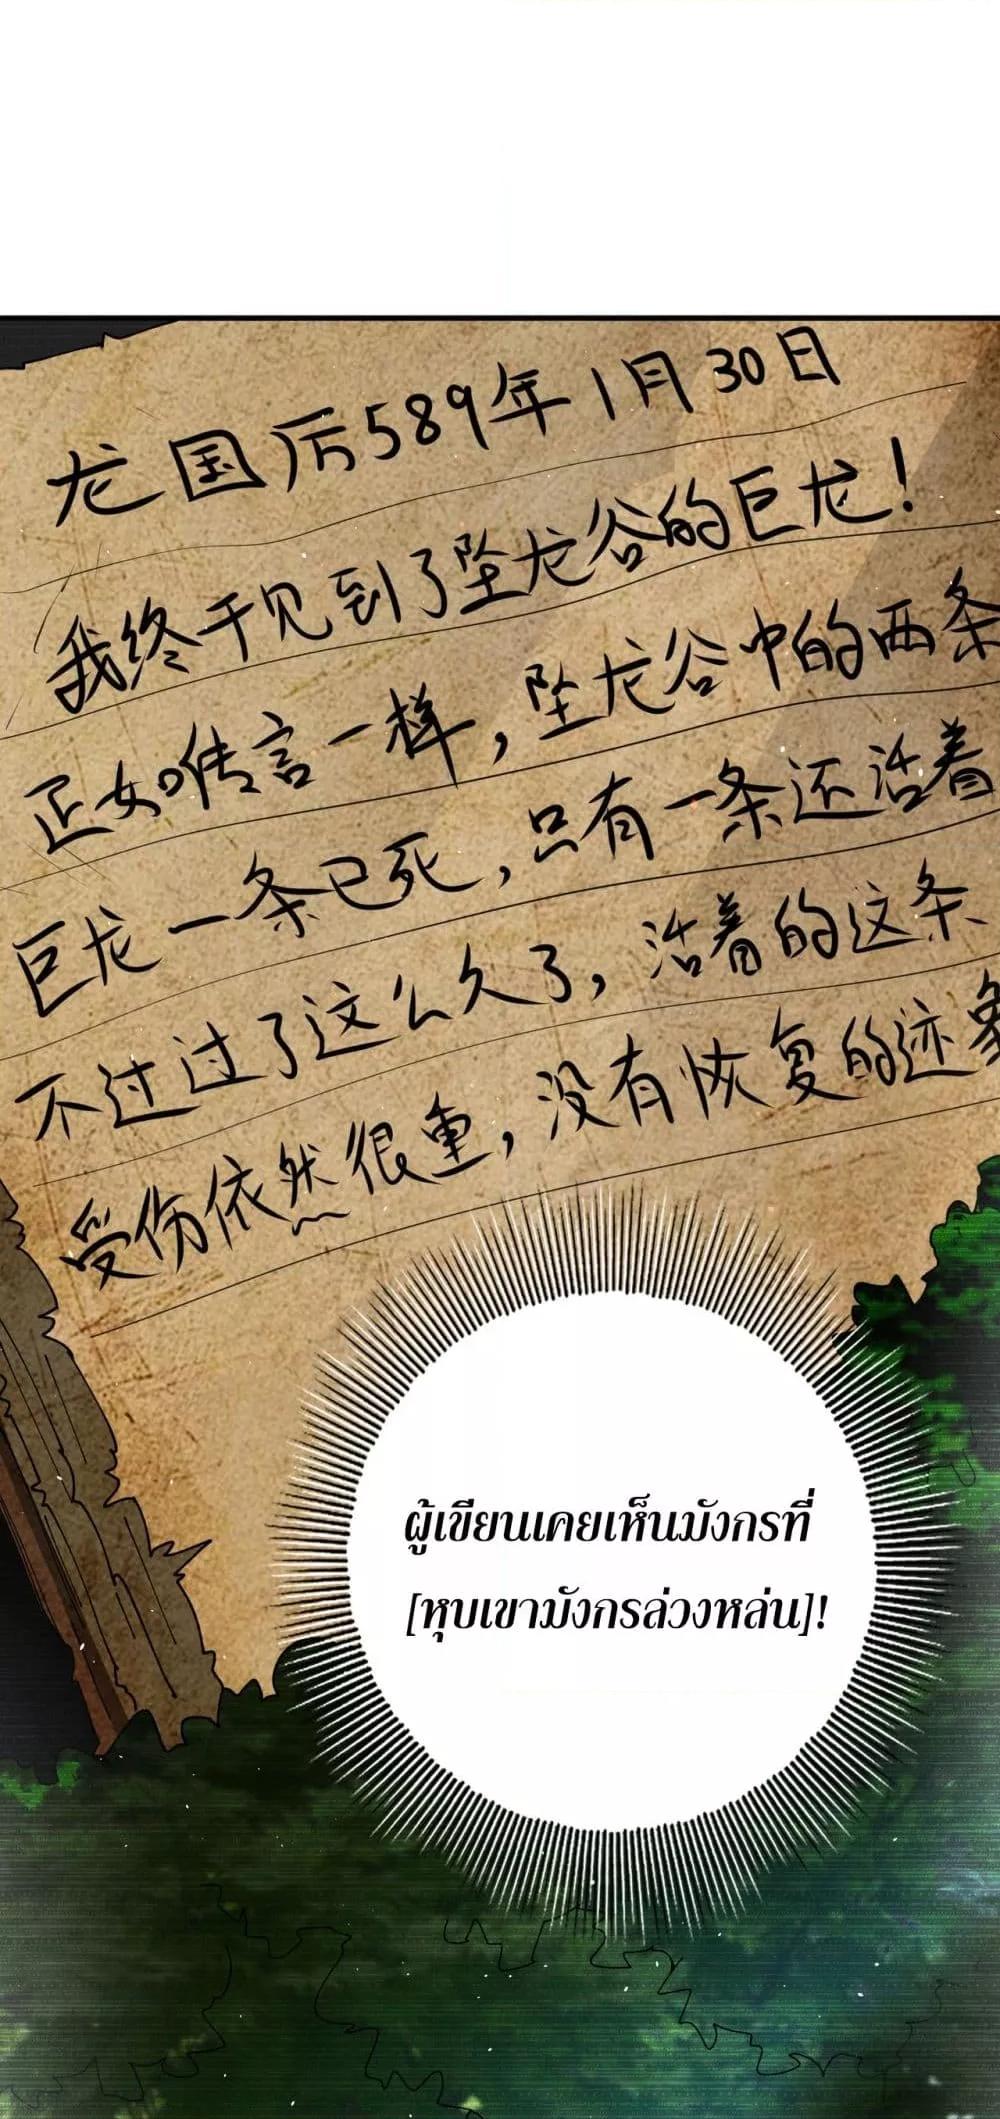 龙国历589年1月30日
我终于见到了坠龙谷的巨龙！
正如传言一样，坠龙谷中的两条
巨龙一条已死，只有一条还活着
不过过了这么久了，活着的这条
受伤依然很重，没有恢复的迹象
ผู้เขียนเคยเห็นมังกรที่
[หุบเขามังกรล่วงหล่น]!